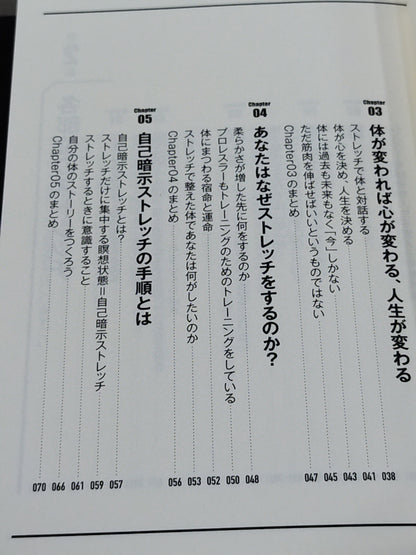 Chapter
03 体が変われば心が変わる、人生が変わる
ストレッチで体と対話する 038
体が心を決め、人生を決める 041
体には過去も未来もなく「今」しかない 043
ただ筋肉を伸ばせばいいというものではない 045
Chapter03のまとめ 047
Chapter
04 あなたはなぜストレッチをするのか?
柔らかさが増した先に何をするのか 048
プロレスラーもトレーニングのためのトレーニングをしている 050
体にまつわる宿命と運命 052
ストレッチで整えた体であなたは何がしたいのか 053
Chapter04のまとめ 056
Chapter
05 自己暗示ストレッチの手順とは
自己暗示ストレッチとは? 057
ストレッチだけに集中する瞑想状態=自己暗示ストレッチ 059
ストレッチするときに意識すること 061
自分の体のストーリーをつくろう 066
Chapter05のまとめ 070